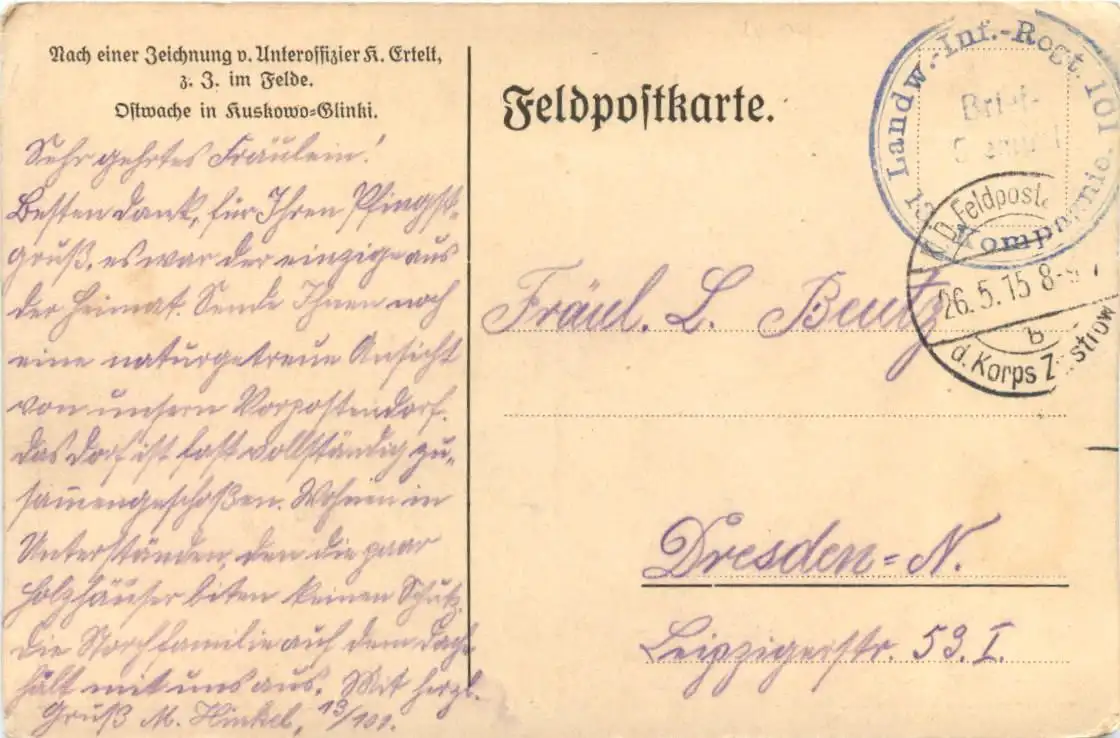 Nach einer Zeichnung v. Unteroffizier K. Ertelt,
z. Z. im Felde.
Ostwache in Kuskowo=Glinki.
Sehr gehrtes Fräulein!
Besten Dank, für Ihren Pfingst-
gruß, es war der einzige aus
der Heimat. Sende Ihnen noch
eine naturgetreue Ansicht
von unsern Vorpostendorf.
Das Dorf ist fast vollständig zu-
samengeschoßen. Wohnen in
Unterständen, den die paar
Holzhäuser biten keinen Schutz.
Die Storchfamilie auf dem Dache
hält mit uns aus. Mit herzl.
Gruß M. Hinkel, 13/101.
Feldpostkarte.
Landw.-Inf.-Regt. 101
Brief-
Stempel
13. Kompagnie.
K.D. Feldpost
26.5.15 8-9
b
d. Korps Zastrow
Fräul. L. Beutz
Dresden=N.
Leipzigerstr. 53. I.